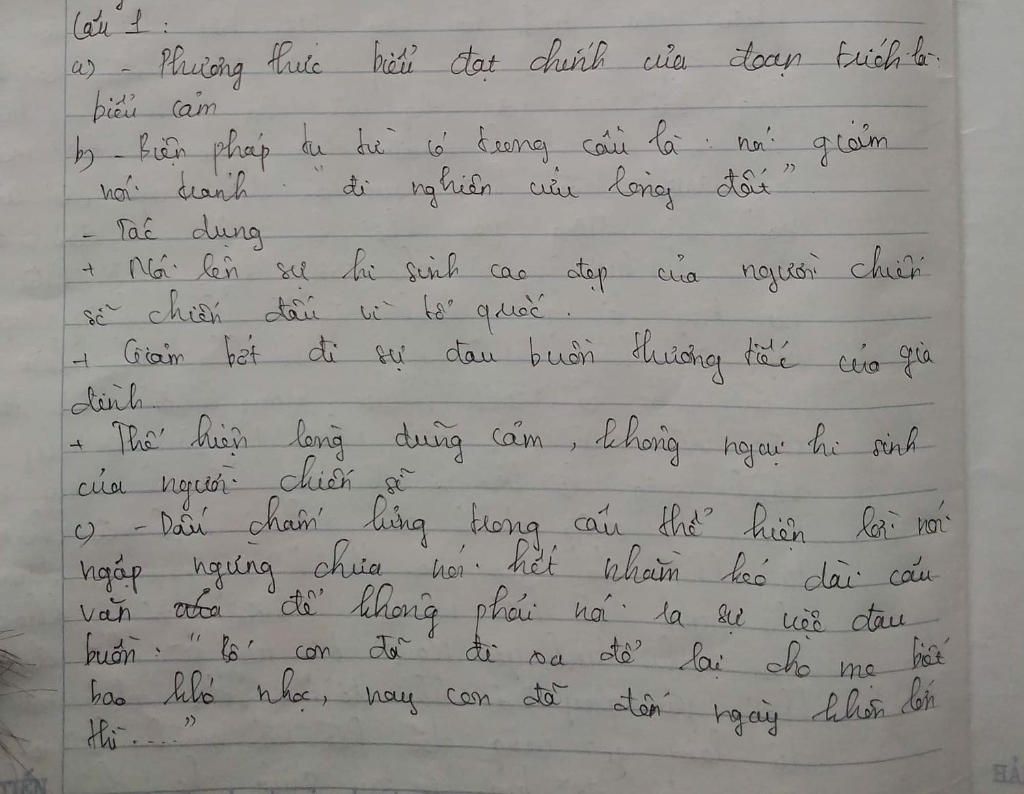 Câu 1 :
a) - Phương thức biểu đạt chính của đoạn trích là
biểu cảm
b) - Biện pháp tu từ có trong câu là : nói giảm
nói tránh : "đi nghiên cứu lòng đất"
- Tác dụng
+ Nói lên sự hi sinh cao đẹp của người chiến
sĩ chiến đấu vì tổ quốc.
+ Giảm bớt đi sự đau buồn thương tiếc của gia
đình.
+ Thể hiện lòng dũng cảm, không ngại hi sinh
của người chiến sĩ
c) - Dấu chấm lửng trong câu thể hiện lời nói
ngập ngừng chưa nói hết nhằm kéo dài câu
văn để không phải nói ra sự việc đau
buồn : "Bố con đã đi xa để lại cho mẹ biết
bao khó nhọc, nay con đã đến ngày khôn lớn
thì ...."
TIẾN
HẢ